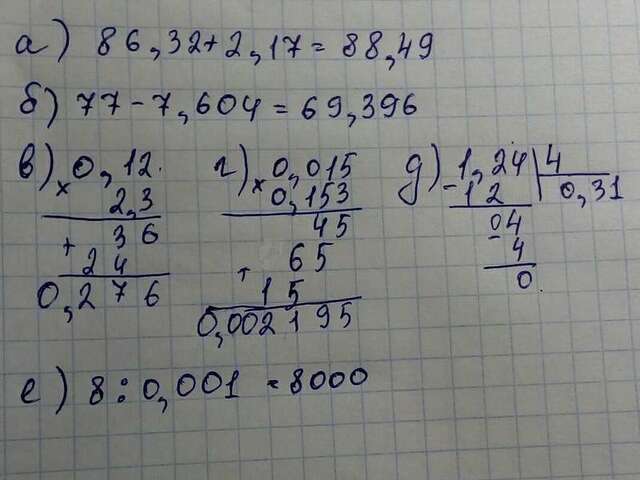 а) 86,32+2,17=88,49
б) 77-7,604=69,396
в) 0,12 г) 0,015 д) 1,24 4
× 2,3 × 0,153 - 12 0,31
36 45 04
+ 24 + 65 - 4
0,276 15 0
0,002195
е) 8:0,001=8000